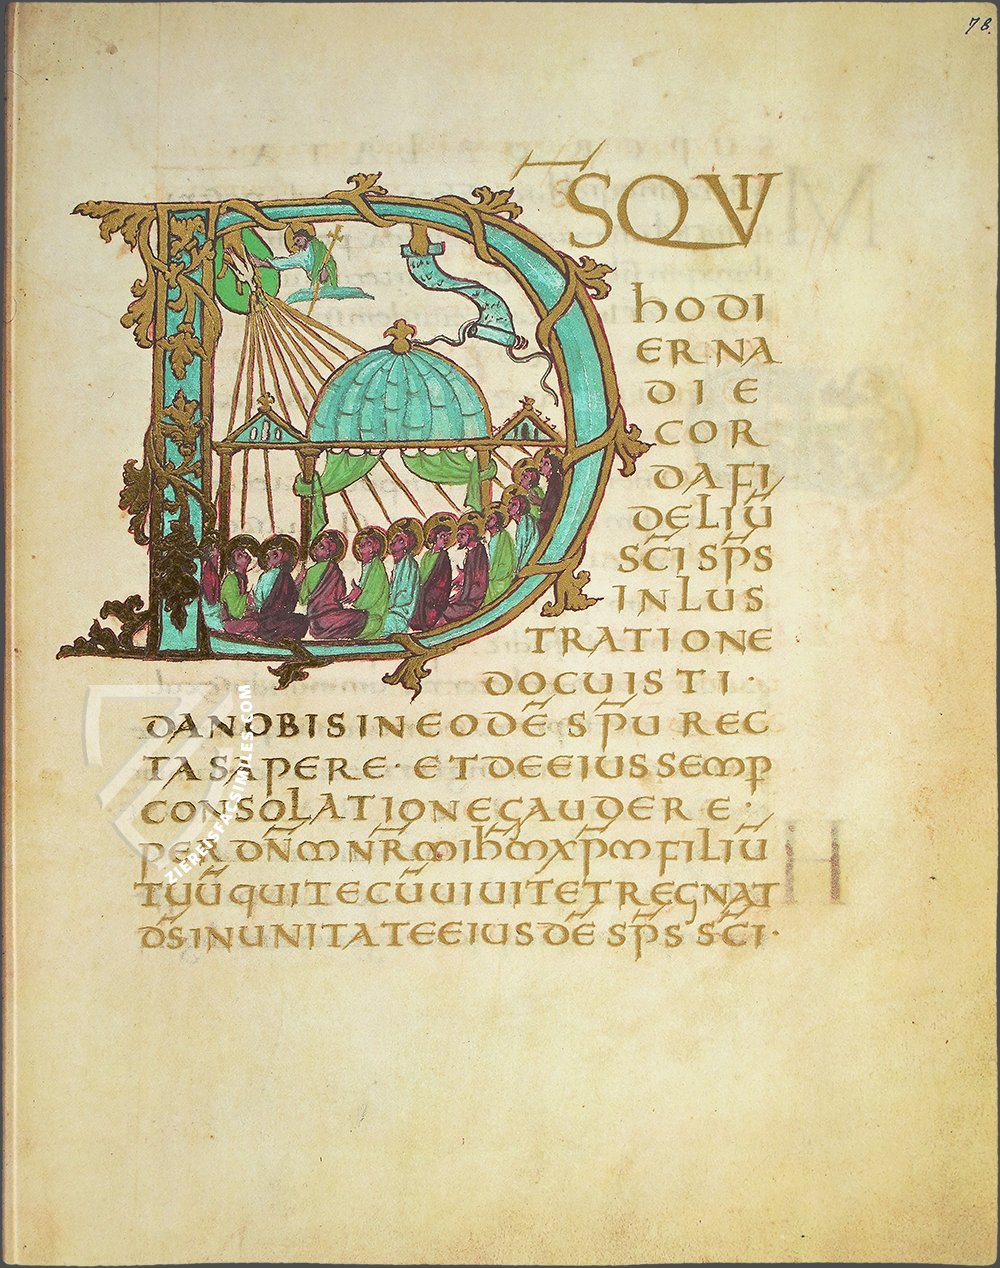 78.
D̄S QVI
hODI
ERNA
DIE
COR
DAFI
DELIŪ
SC̄I SP̄S
INLUS
TRATIONE
DOCUISTI·
DANOBISINEODĒ SP̄U REC
TASAPERE· ETDEEIUSSEMP̄
CONSOLATIONEGAUDERE·
PERDN̄M NR̄M IHM XP̄M FILIŪ
TUŪ QUITECŪ UIUITETREGNAT
D̄S INUNITATEEIUSDĒ SP̄S SC̄I·
ZIEREISFACSIMILES.COM